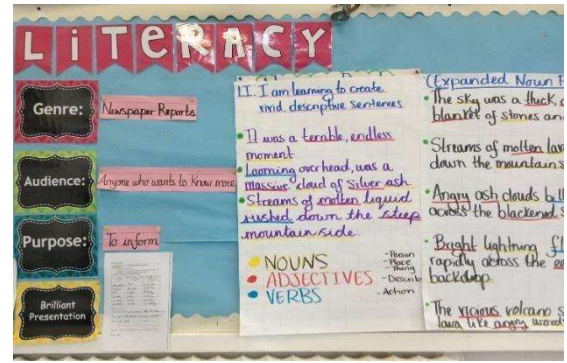 LiTeRACY
Genre:
Newspaper Reports
Audience:
Anyone who wants to know more
Purpose:
To inform
Brilliant
Presentation
LI. I am learning to create
vivid descriptive sentences
It was a terrible, endless
moment
Looming overhead, was a
massive cloud of silver ash
Streams of molten liquid
rushed down the steep
mountain side.
NOUNS
- Person
- Place
- Thing
ADJECTIVES - Describ
VERBS - Action
(Expanded Noun P
The sky was a thick,
blanket of stones an
Streams of molten lav
down the mountain s
Angry ash clouds bill
across the blackened s
Bright lightning fl
rapidly across the
backdrop
The vicious volcano s
lava like angry word